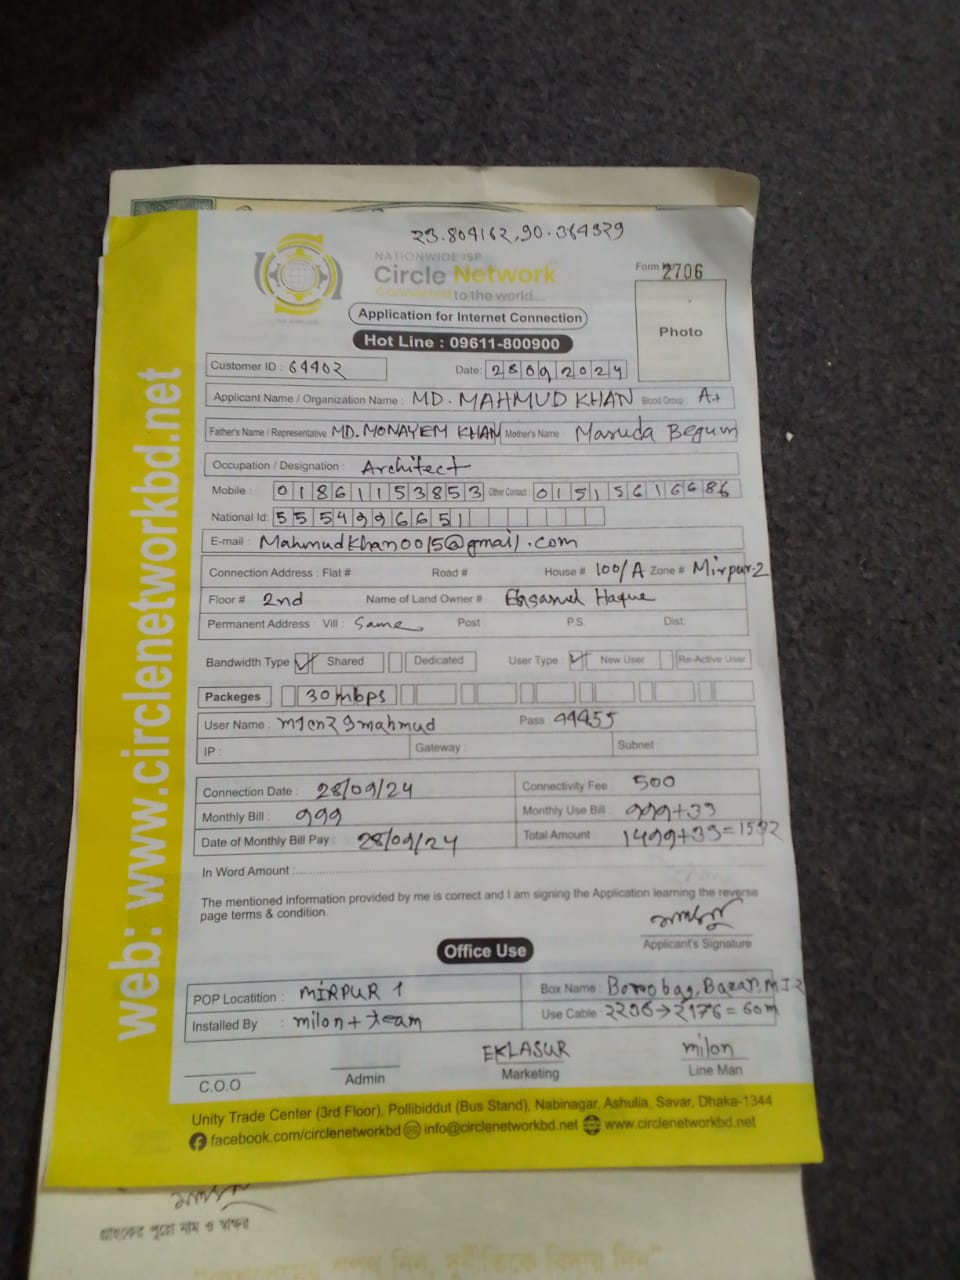 23.804162,90.364329
NATIONWIDE ISP
Circle Network
Connected to the world...
Form No 2706
Application for Internet Connection
Photo
Hot Line : 09611-800900
Customer ID : 64402 Date: 28092024
Applicant Name / Organization Name : MD. MAHMUD KHAN Blood Group : A+
Father's Name / Representative MD. MONAYEM KHAN Mother's Name Masuda Begum
Occupation / Designation : Architect
Mobile : 01861153853 Other Contact : 01515616686
National Id: 5554996651
E-mail : Mahmudkhan0015@gmail.com
Connection Address : Flat # Road # House # 100/A Zone # Mirpur-2
Floor # 2nd Name of Land Owner # Ehsanul Haque
Permanent Address : Vill : Same Post P.S. Dist.
Bandwidth Type Shared Dedicated User Type : New User Re-Active User
Packeges 30mbps
User Name : Pass 44455
IP : Gateway : Subnet
Connection Date : 28/09/24 Connectivity Fee : 500
Monthly Bill : 999 Monthly Use Bill : 999+33
Date of Monthly Bill Pay : 28/09/24 Total Amount : 1499+33=1532
In Word Amount :
The mentioned information provided by me is correct and I am signing the Application learning the reverse
page terms & condition.
Applicant's Signature
Office Use
POP Locatition : MIRPUR 1 Box Name : Borobag, Bazar,
Installed By : milon + team Use Cable : 2236→2176=60m
C.O.O Admin EKLASUR Marketing milon Line Man
Unity Trade Center (3rd Floor), Pollibiddut (Bus Stand), Nabinagar, Ashulia, Savar, Dhaka-1344
facebook.com/circlenetworkbd info@circlenetworkbd.net www.circlenetworkbd.net
web: www.circlenetworkbd.net
গ্রাহকের পুরো নাম ও স্বাক্ষর